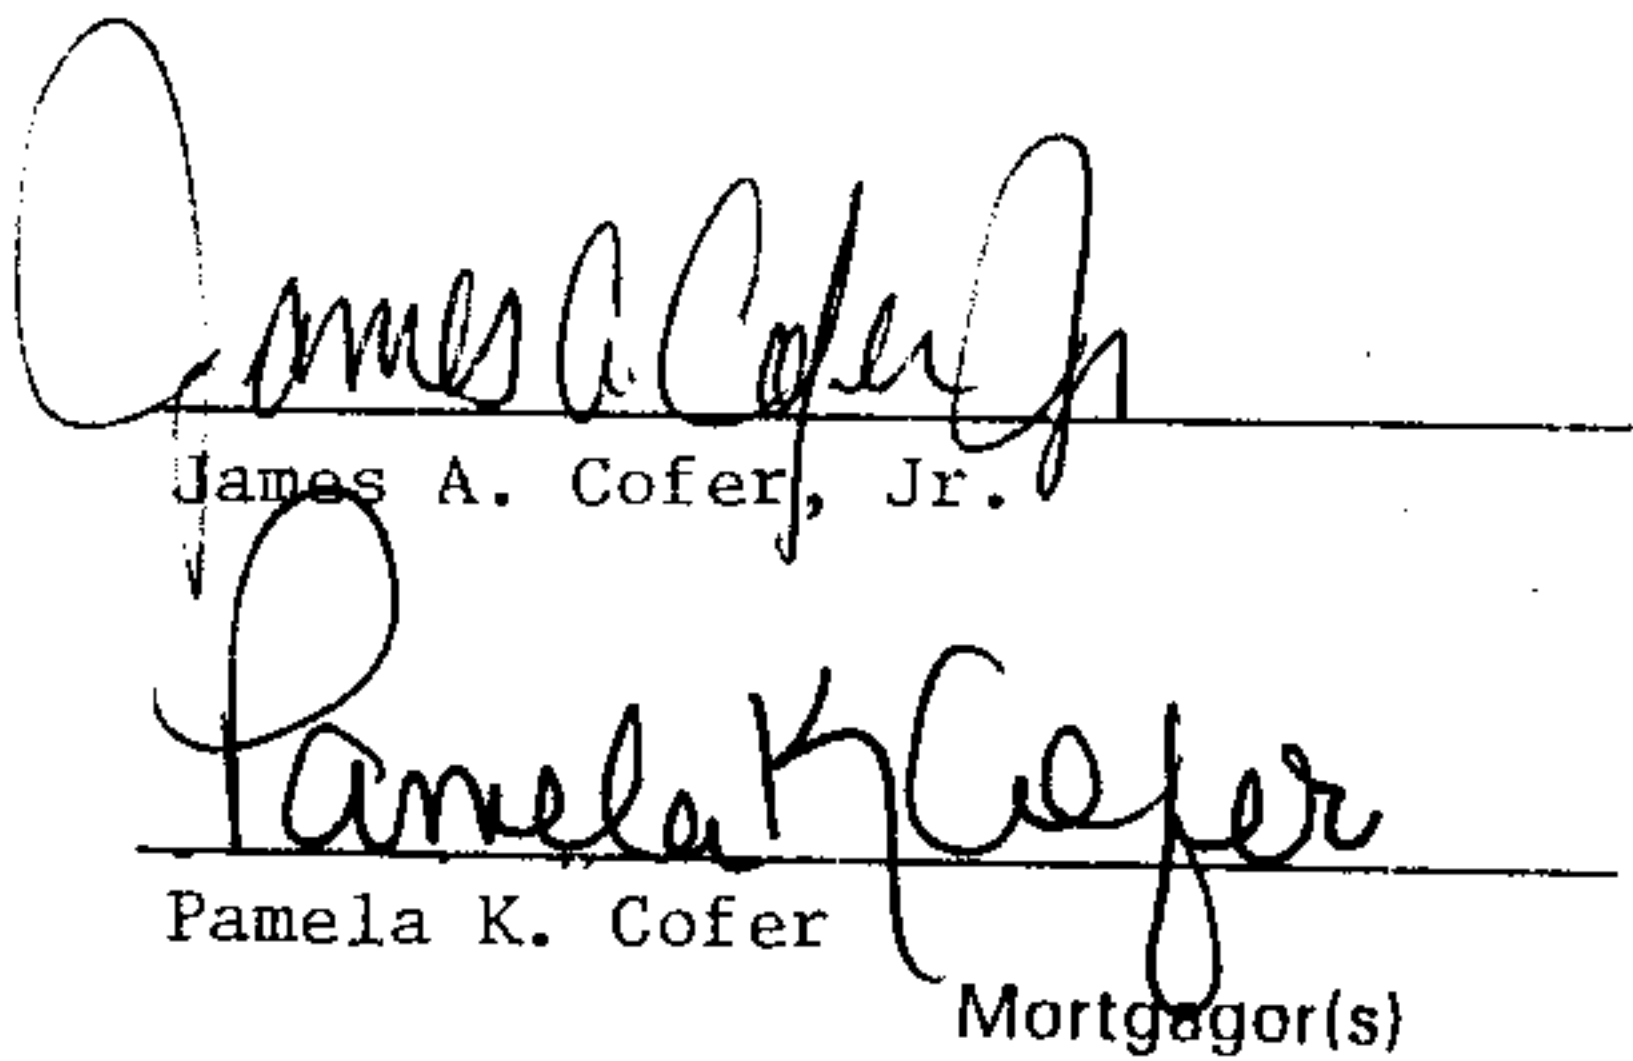 James A. Cofer Jr
James A. Cofer, Jr.
Pamela K Cofer
Pamela K. Cofer
Mortgagor(s)